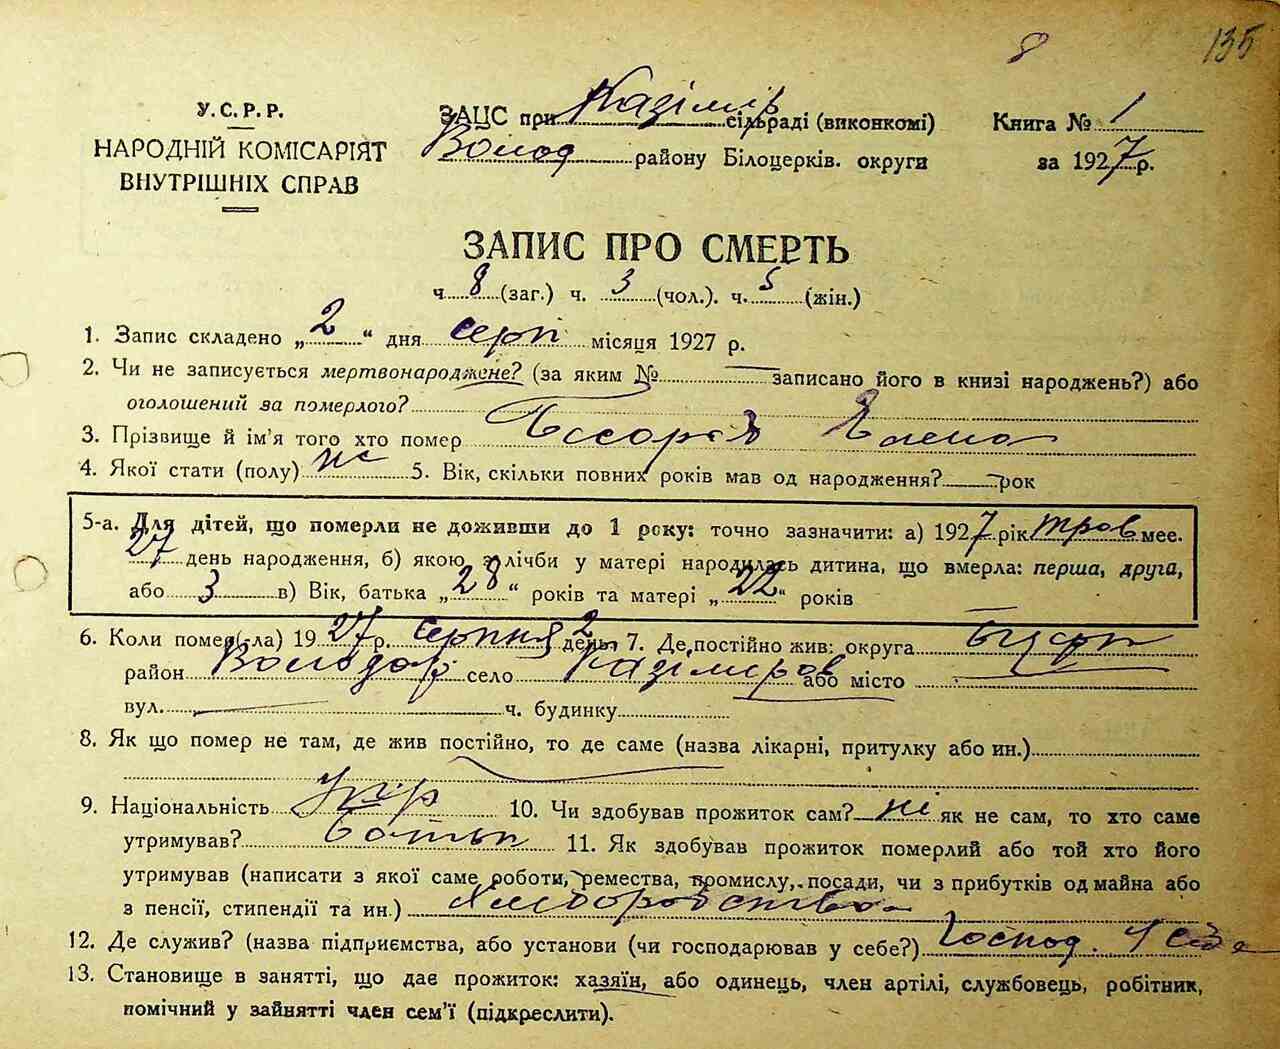 8 135
У.С.Р.Р.
НАРОДНІЙ КОМІСАРІЯТ
ВНУТРІШНІХ СПРАВ
ЗАЦС при Казімір сільраді (виконкомі)
Волод району Білоцерків. округи
Книга № 1
за 1927 р.
ЗАПИС ПРО СМЕРТЬ
ч. 8 (заг.) ч. 3 (чол.). ч. 5 (жін.)
1. Запис складено „2“ дня серп місяця 1927 р.
2. Чи не записується мертвонароджене? (за яким № записано його в книзі народжень?) або
оголошений за померлого?
3. Прізвище й ім'я того хто помер Елена
4. Якої стати (полу) ж 5. Вік, скільки повних років мав од народження? рок
5-а. Для дітей, що померли не доживши до 1 року: точно зазначити: а) 1927 рік трав мес.
27 день народження, б) якою з лічби у матері народилась дитина, що вмерла: перша, друга,
або 3 в) Вік, батька „28“ років та матері „22“ років
6. Коли помер(-ла) 1927 р. серпня 2 день. 7. Де постійно жив: округа
район Володар село Казімиров або місто
вул. ч. будинку
8. Як що помер не там, де жив постійно, то де саме (назва лікарні, притулку або ин.)
9. Національність Укр 10. Чи здобував прожиток сам? ні як не сам, то хто саме
утримував? батьк 11. Як здобував прожиток померлий або той хто його
утримував (написати з якої саме роботи, ремества, промислу, посади, чи з прибутків од майна або
з пенсії, стипендії та ин.) Хліборобство
12. Де служив? (назва підприємства, або установи (чи господарював у себе?) Господ. у себе
13. Становище в занятті, що дає прожиток: хазяїн, або одинець, член артілі, службовець, робітник,
помічний у зайнятті член сем'ї (підкреслити).